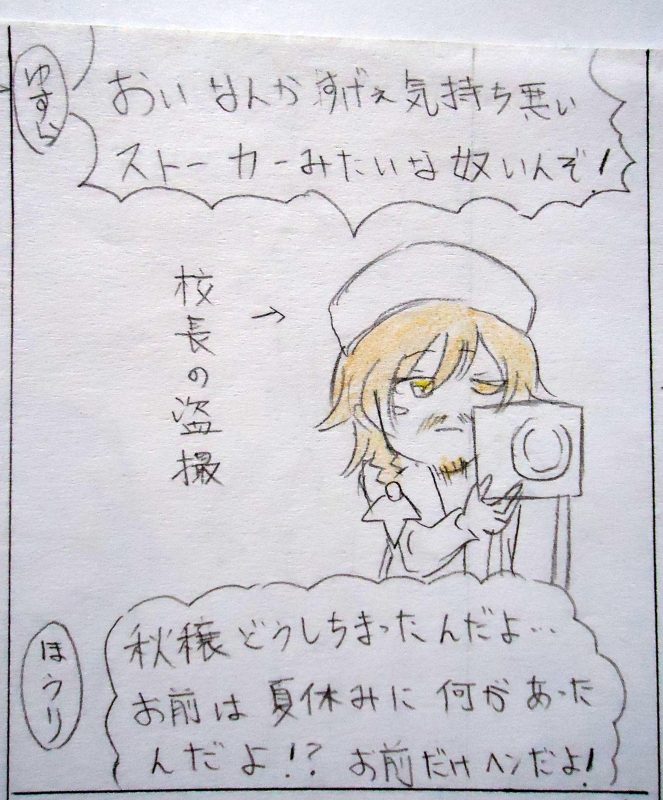 ゆすら
おい なんか すげぇ 気持ち悪い
ストーカーみたいな奴いんぞ!
校長の盗撮
→
ほうり
秋穣どうしちまったんだよ…
お前は夏休みに何があった
んだよ!? お前だけヘンだよ!